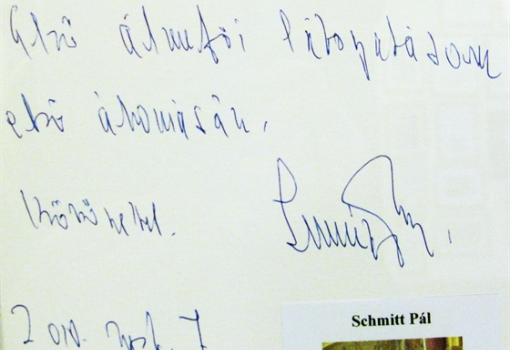 Első államfői látogatásom
első állomásán,
Köszönettel.
2010.
Schmitt Pál